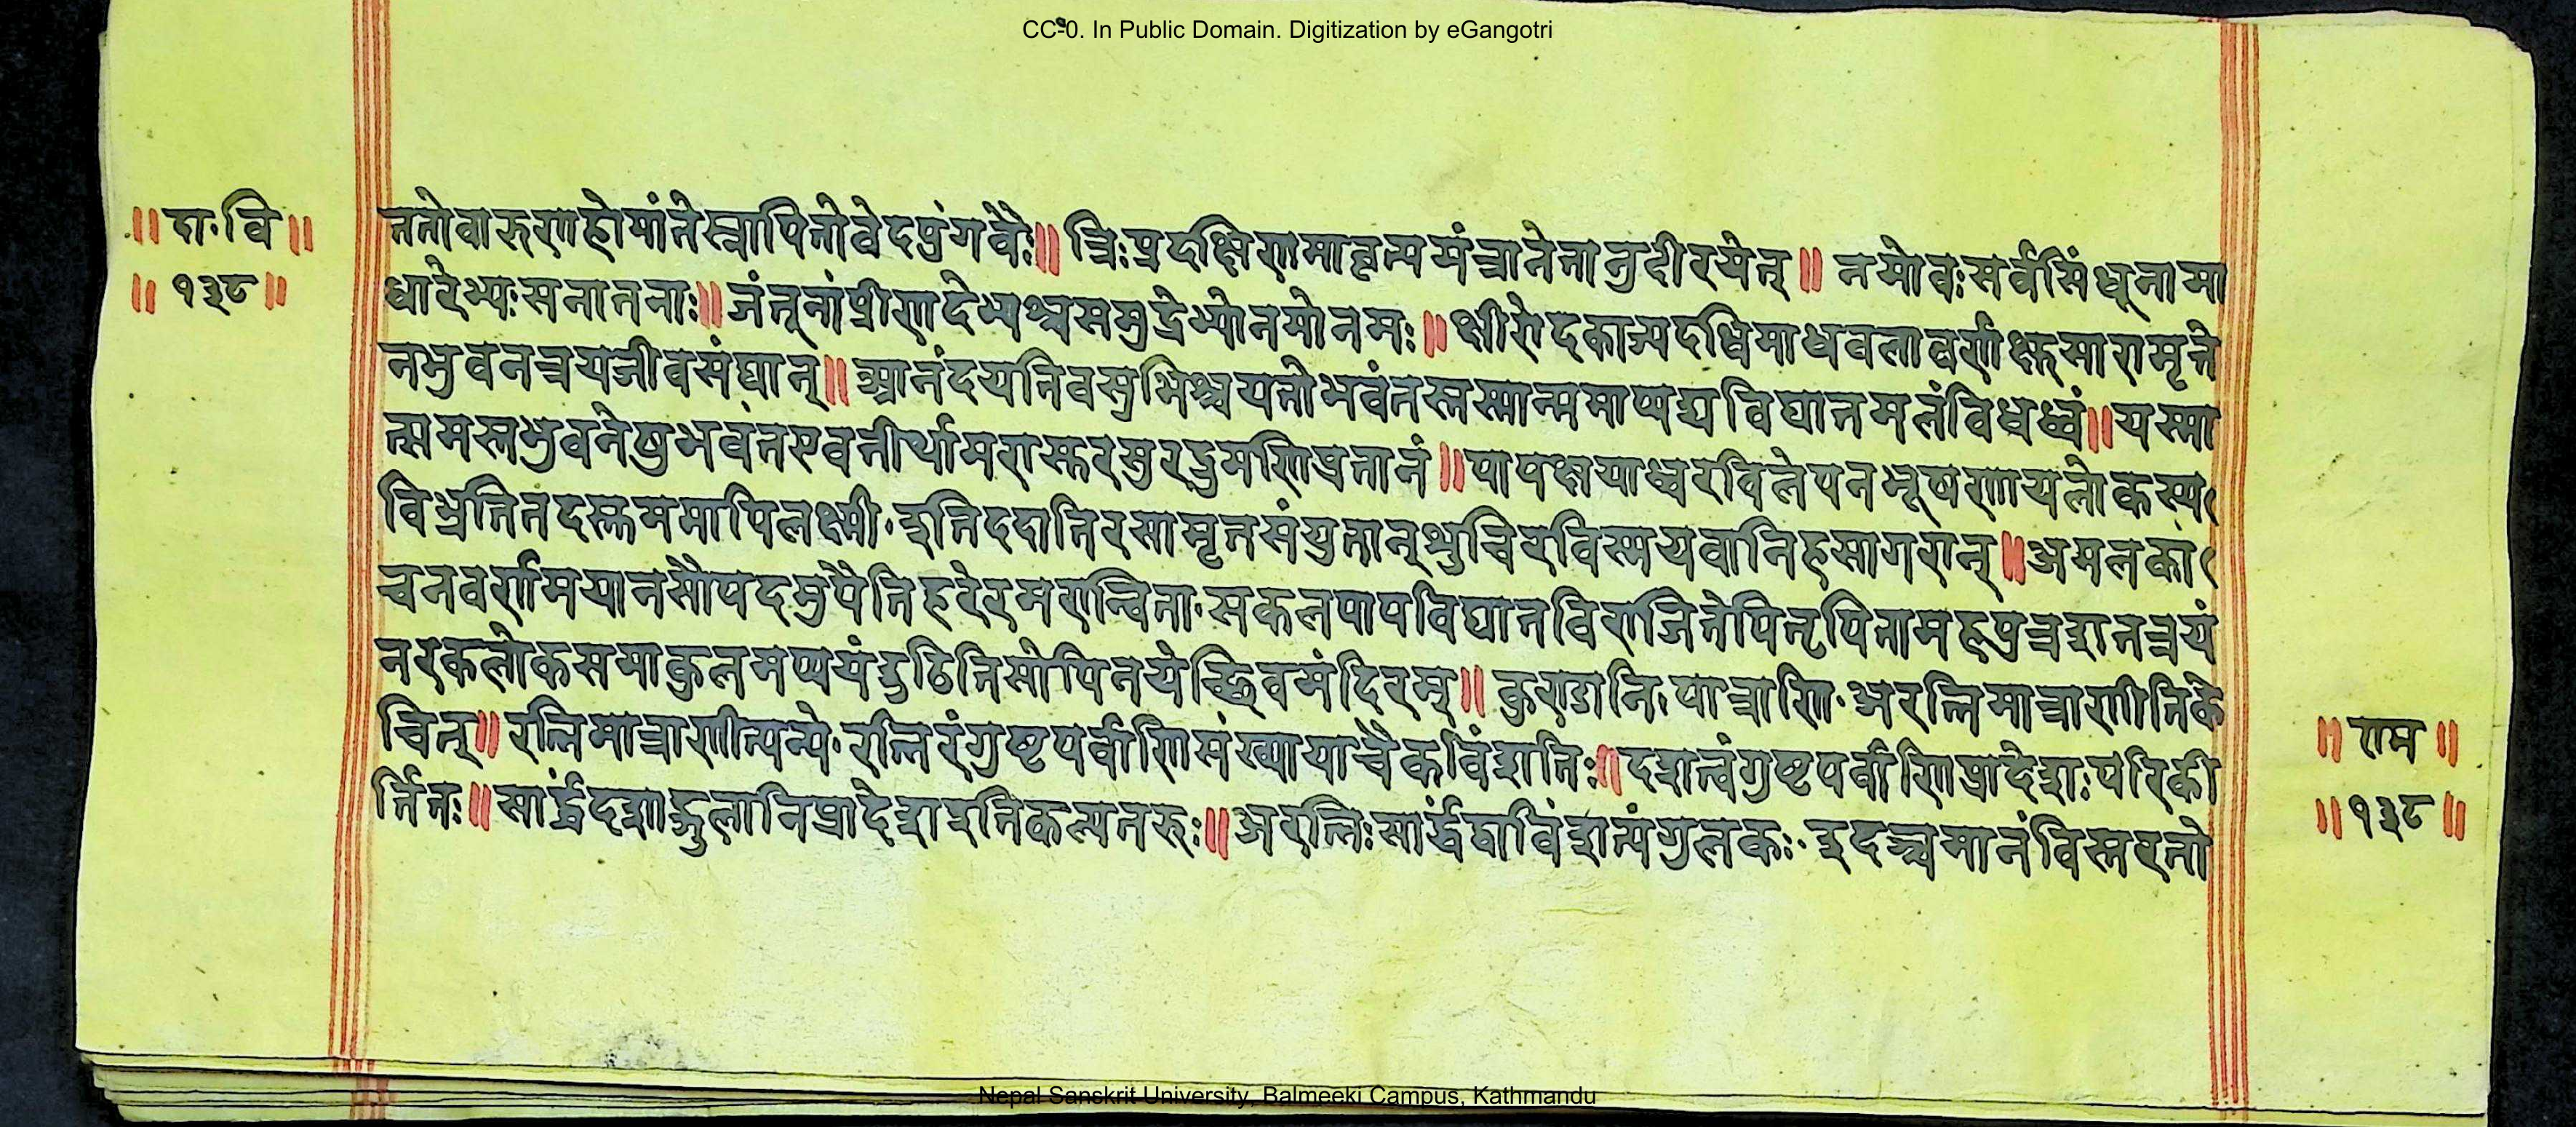 CC-0. In Public Domain. Digitization by eGangotri
॥ दा॰ वि ॥
॥ १३८ ॥
ततोवारुणहोमांतेस्नापितोवेदपुंगवैः॥ त्रिःप्रदक्षिणमावृत्यमंत्रानेतानुदीरयेत्॥ नमोवःसर्वसिंधूनामा
धारेभ्यःसनातनाः॥ जंतूनांप्रीणदेभ्यश्चसमुद्रेभ्योनमोनमः॥ क्षीरोदकाज्यदधिमाधवलावणेक्षुसारामृते
नभुवनत्रयजीवसंघान्॥ आनंदयतिवसुभिश्चयतोभवंतस्तस्मान्ममाप्यद्यविघातमलंविधध्वं॥ यस्मा
त्समस्तभुवनेषुभवंतएवतीर्थामरासुरसुरद्रुमणिप्रतानं॥ पापक्षयाध्वरविलेपनभूषणायलोकस्य
विभ्रतितदस्तुममापिलक्ष्मी॰ इतिददातिरसामृतसंयुतान्शुचिरविस्मयवानिहसागरान्॥ अमलकां
चनवर्णमयानसौपदमुपैतिहरेरमरान्विता॰ सकलपापविघातविराजितेपितृपितामहपुत्रशतत्रयं
नरकलोकसमाकुलमप्ययंद्रुठितिसोपिनयेच्छिवमंदिरम्॥ कुण्डानि॰ पात्राणि॰ अरत्निमात्राणीतिके
चित्॥ रत्निमात्राणीत्यन्ये॰ रत्निरंगुष्टपर्वाणिसंख्यायाचैकविंशतिः॥ दशत्वंगुष्टपर्वाणिप्रादेशःपरिकी
र्त्तितः॥ सार्द्धदशाङ्गुलानिप्रादेशइतिकल्पतरुः॥ अरत्निःसार्द्धद्वाविंशत्यंगुलकः॰ इदञ्चमानंविस्तरतो
॥ राम ॥
॥ १३८ ॥
Nepal Sanskrit University, Balmeeki Campus, Kathmandu